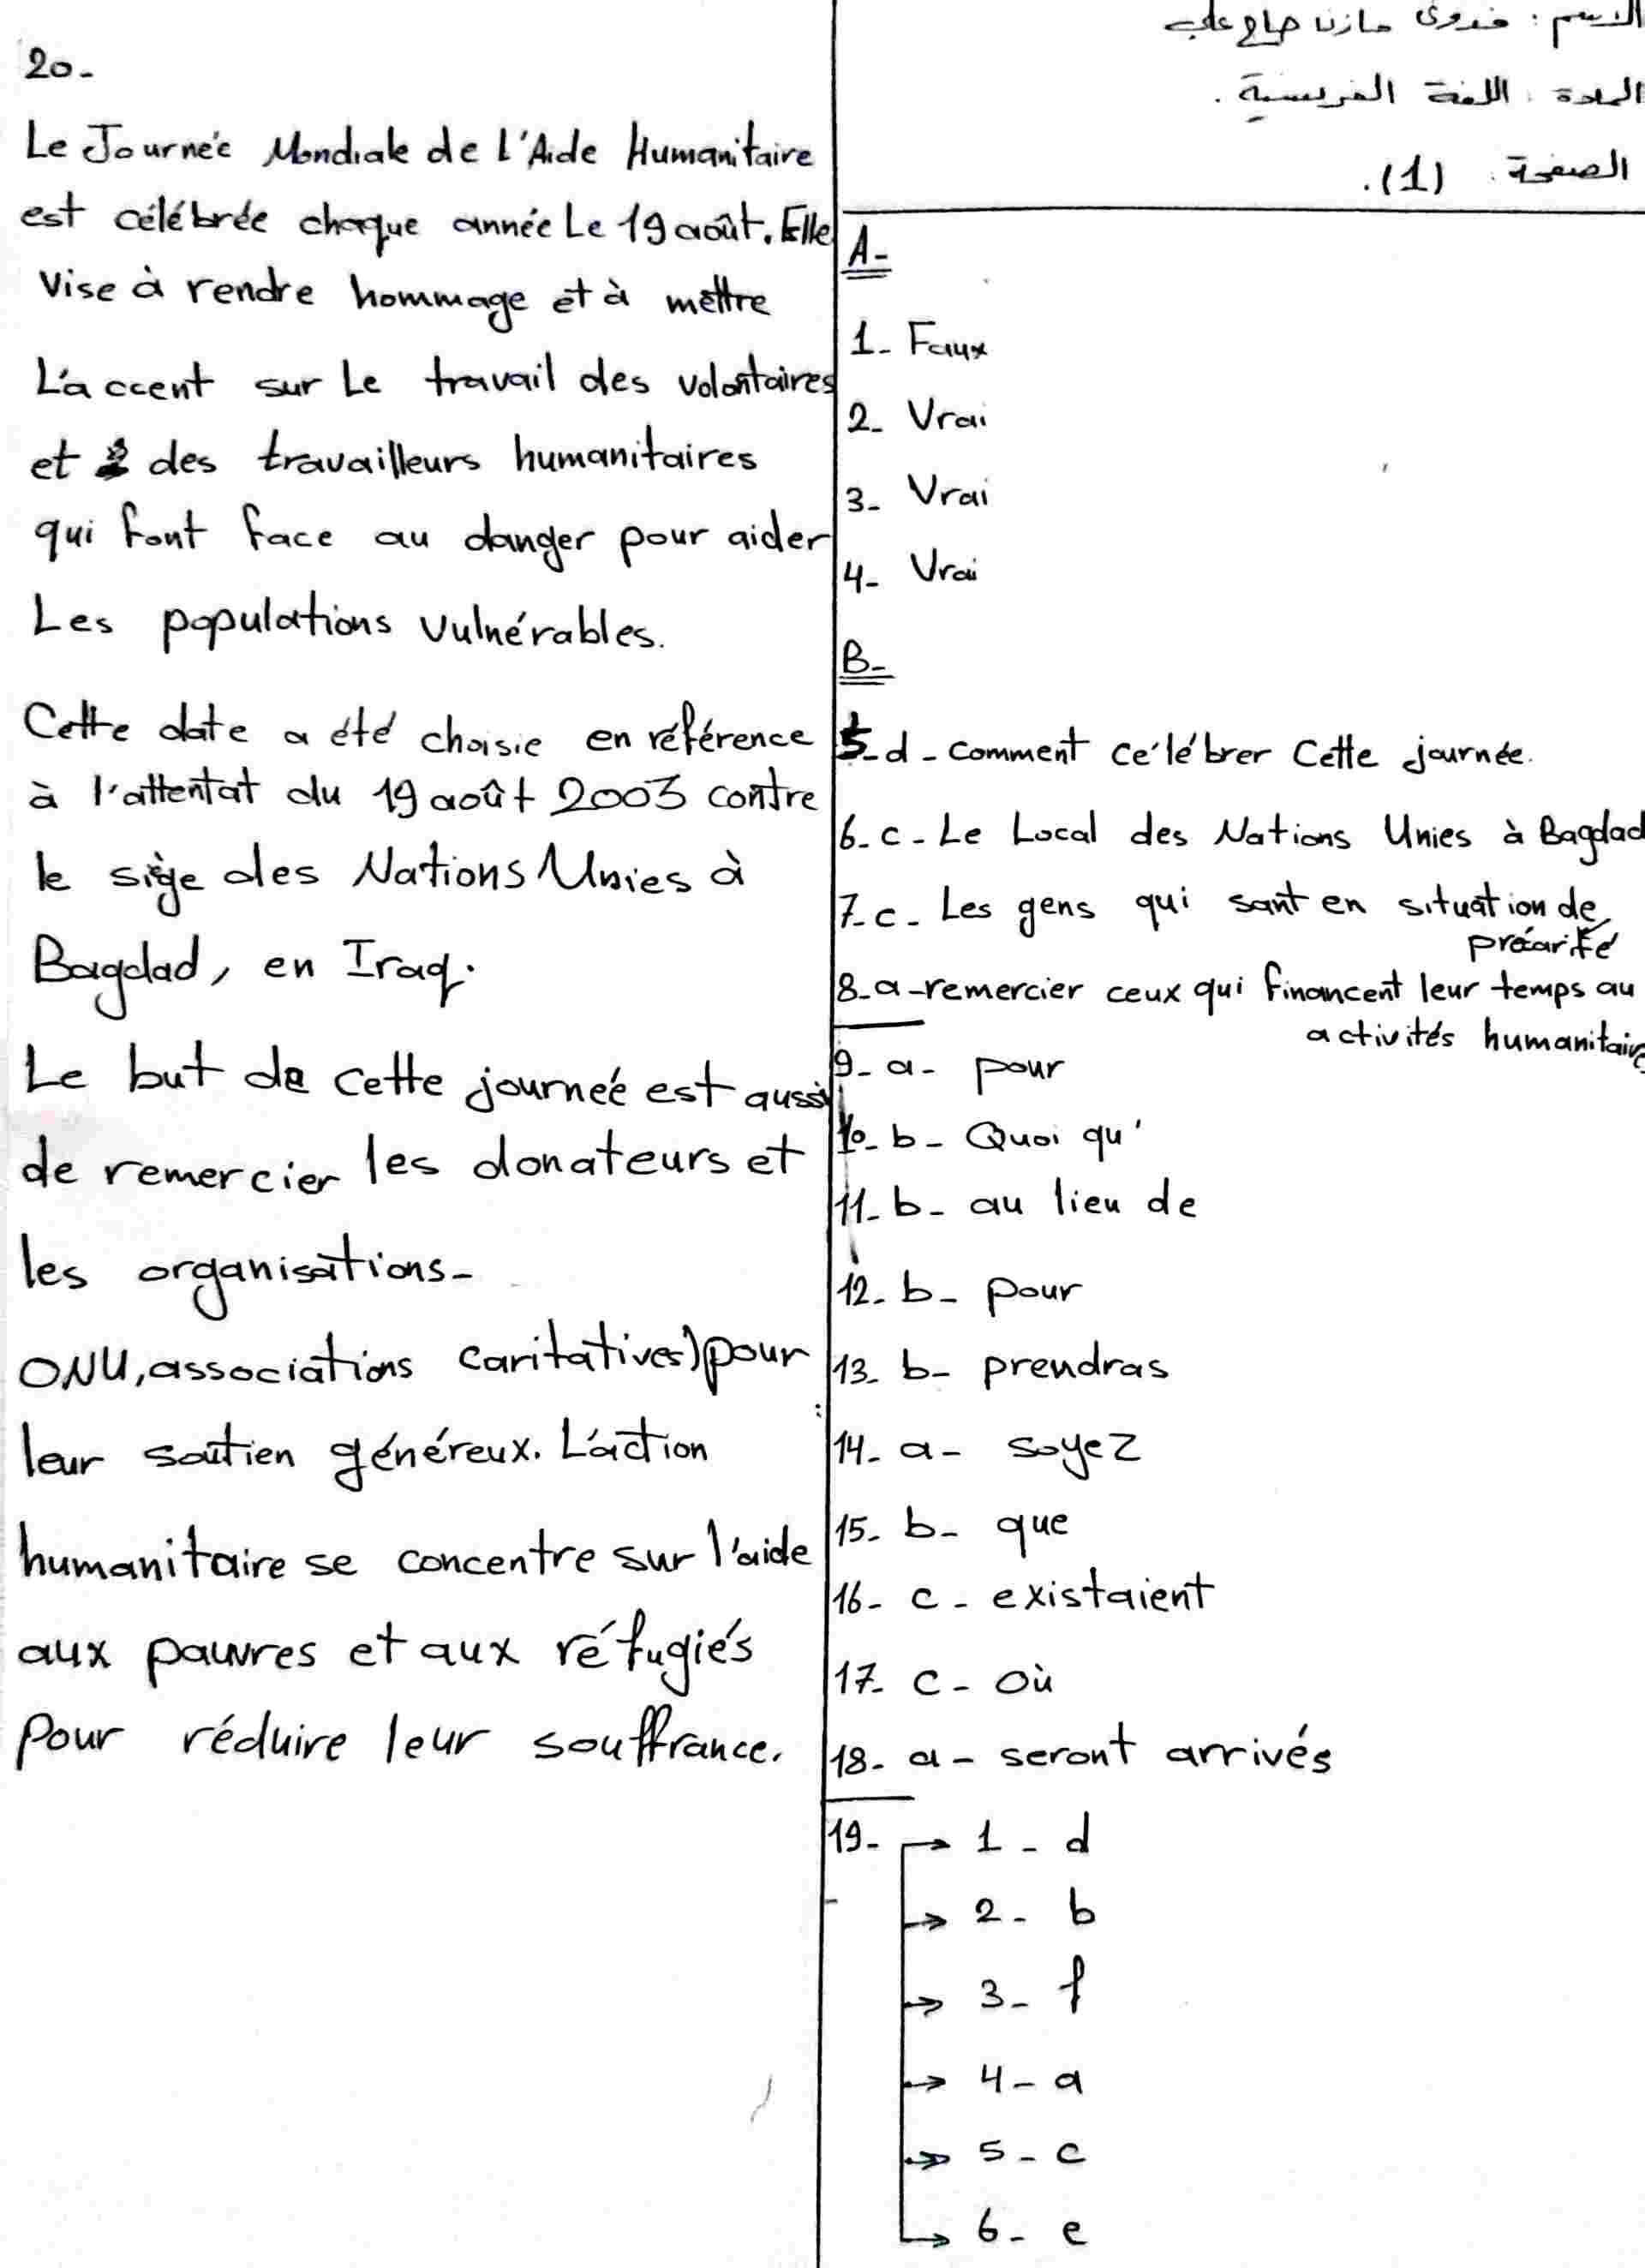 الاسم : فدوى مازن حاج علي
المادة : اللغة الفرنسية .
الصفحة : (1) .
A-
1- Faux
2- Vrai
3- Vrai
4- Vrai
B-
5-d- comment célébrer Cette journée.
6-c-Le Local des Nations Unies à Bagdad
7-c- Les gens qui sont en situation de
précarité
8-a-remercier ceux qui financent leur temps au
activités humanitaire
9-a- pour
10-b- Quoi qu'
11-b- au lieu de
12-b- pour
13-b- prendras
14-a- soyez
15-b- que
16-c- existaient
17-c- Où
18-a- seront arrivés
19-
1-d
2-b
3-f
4-a
5-c
6-e
20-
Le Journée Mondiale de L'Aide Humanitaire
est célébrée chaque année Le 19 août. Elle
Vise à rendre hommage et à mettre
L'accent sur Le travail des volontaires
et des travailleurs humanitaires
qui font face au danger pour aider
Les populations vulnérables.
Cette date a été choisie en référence
à l'attentat du 19 août 2003 contre
le siège des Nations Unies à
Bagdad, en Iraq.
Le but de cette journée est aussi
de remercier les donateurs et
les organisations-
ONU, associations caritatives) pour
leur soutien généreux. L'action
humanitaire se concentre sur l'aide
aux pauvres et aux réfugiés
Pour réduire leur souffrance.